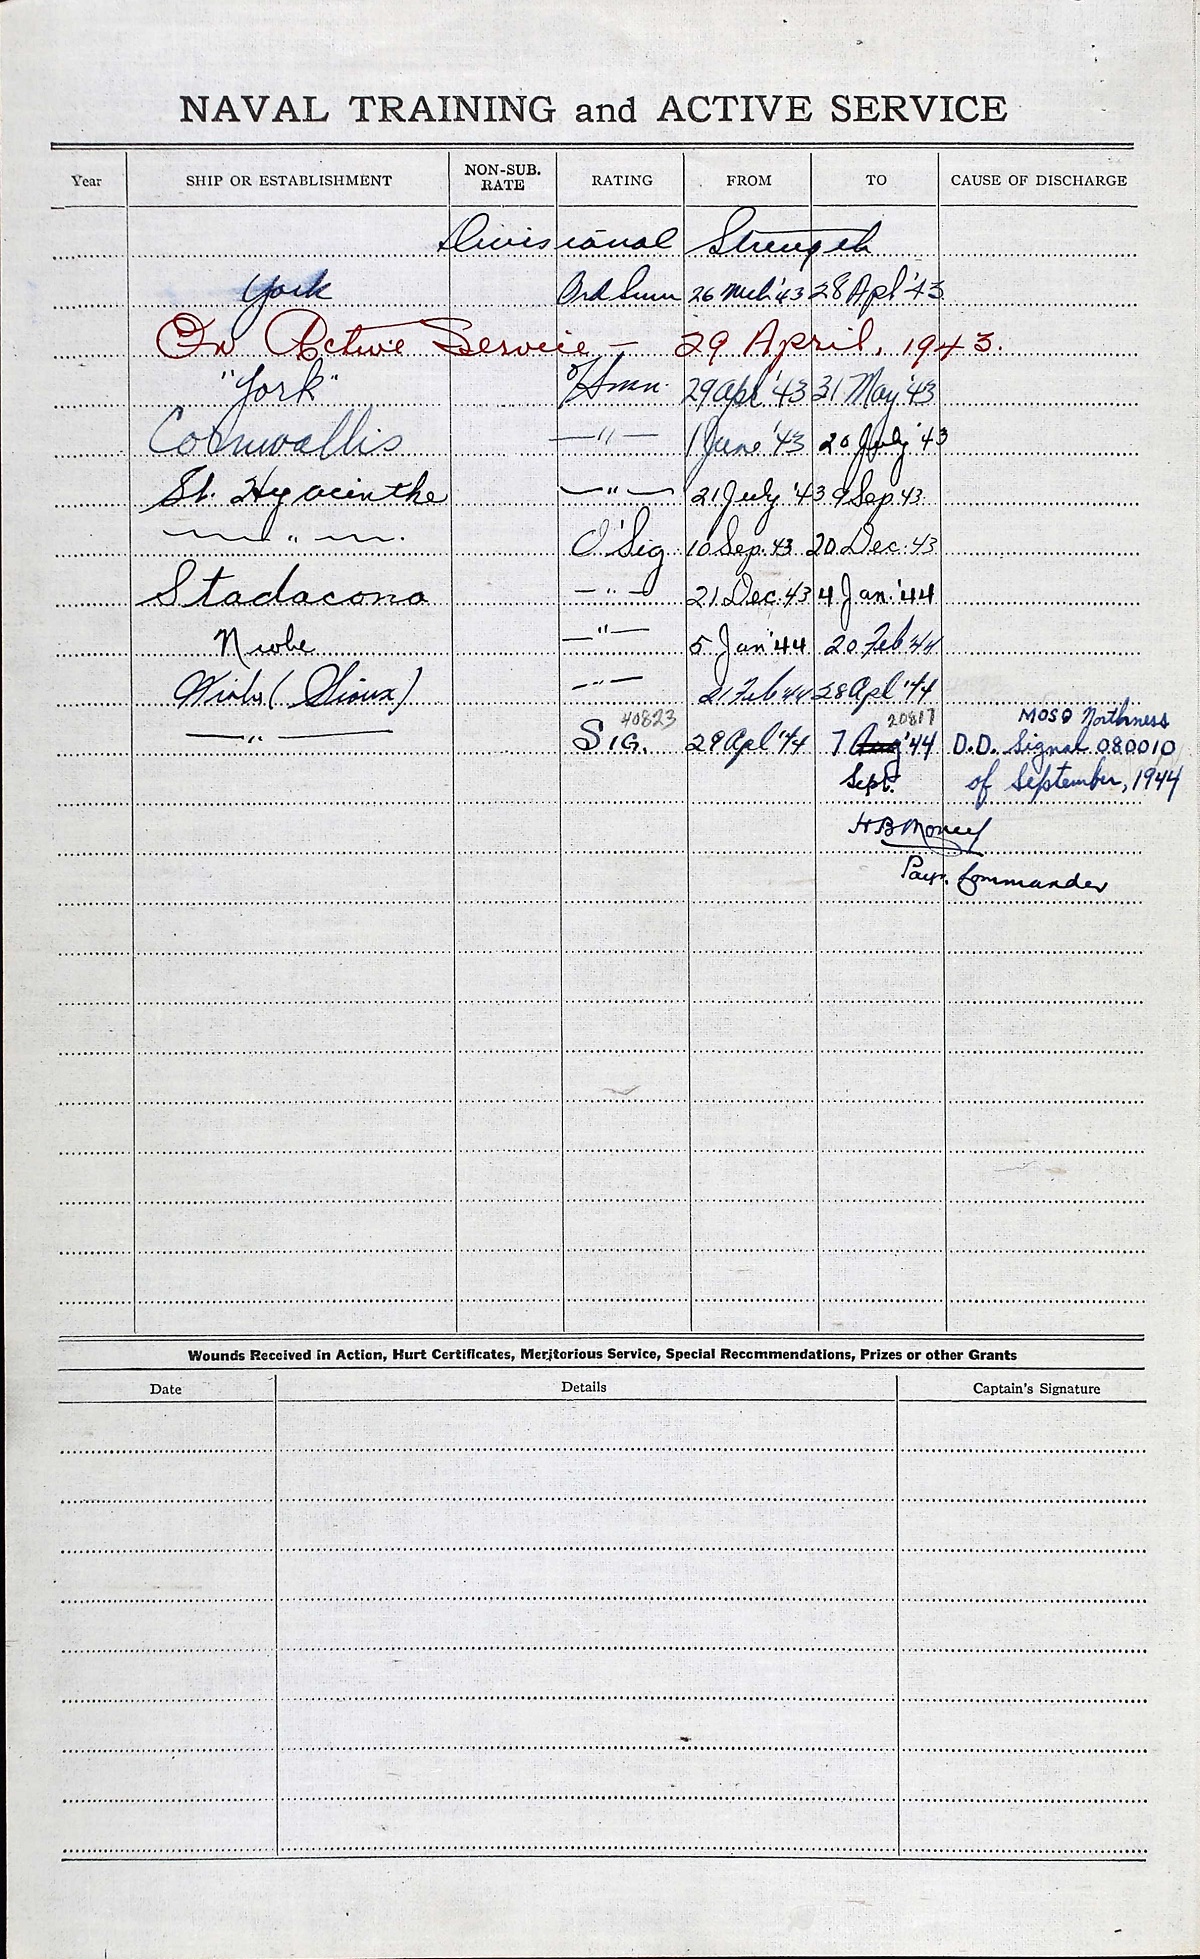 NAVAL TRAINING and ACTIVE SERVICE
Year SHIP OR ESTABLISHMENT NON-SUB. RATE RATING FROM TO CAUSE OF DISCHARGE
Divisional Strength
York Ord Smn 26 Mch '43 28 Apl '43
On Active Service - 29 April, 1943.
"York" O/Smn. 29 Apl '43 31 May '43
Cornwallis — " — 1 June '43 20 July '43
St. Hyacinthe — " — 21 July '43 9 Sep. 43.
— " — O'Sig 10 Sep. 43 20 Dec. 43
Stadacona — " — 21 Dec. 43 4 Jan. '44
Niobe — " — 5 Jan '44 20 Feb '44
Niobe (Sioux) — " — 21 Feb '44 28 Apl '44
40823 20817 Northness
— " — SIG. 29 Apl '44 7 Aug '44 D.D. Signal 080010
Sept. of September, 1944
H B Money
Payr. Commander
Wounds Received in Action, Hurt Certificates, Meritorious Service, Special Recommendations, Prizes or other Grants
Date Details Captain's Signature